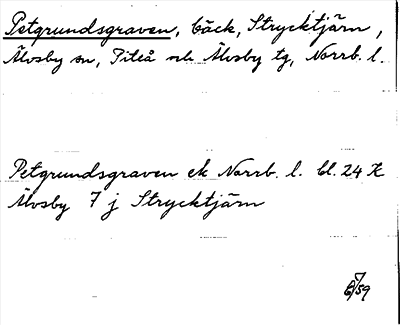 Petgrundsgraven, bäck, Strycktjärn,
Älvsby sn, Piteå och Älvsby tg, Norrb. l.
Petgrundsgraven ek Norrb. l. bl. 24 K
Älvsby 7 j Strycktjärn
/59